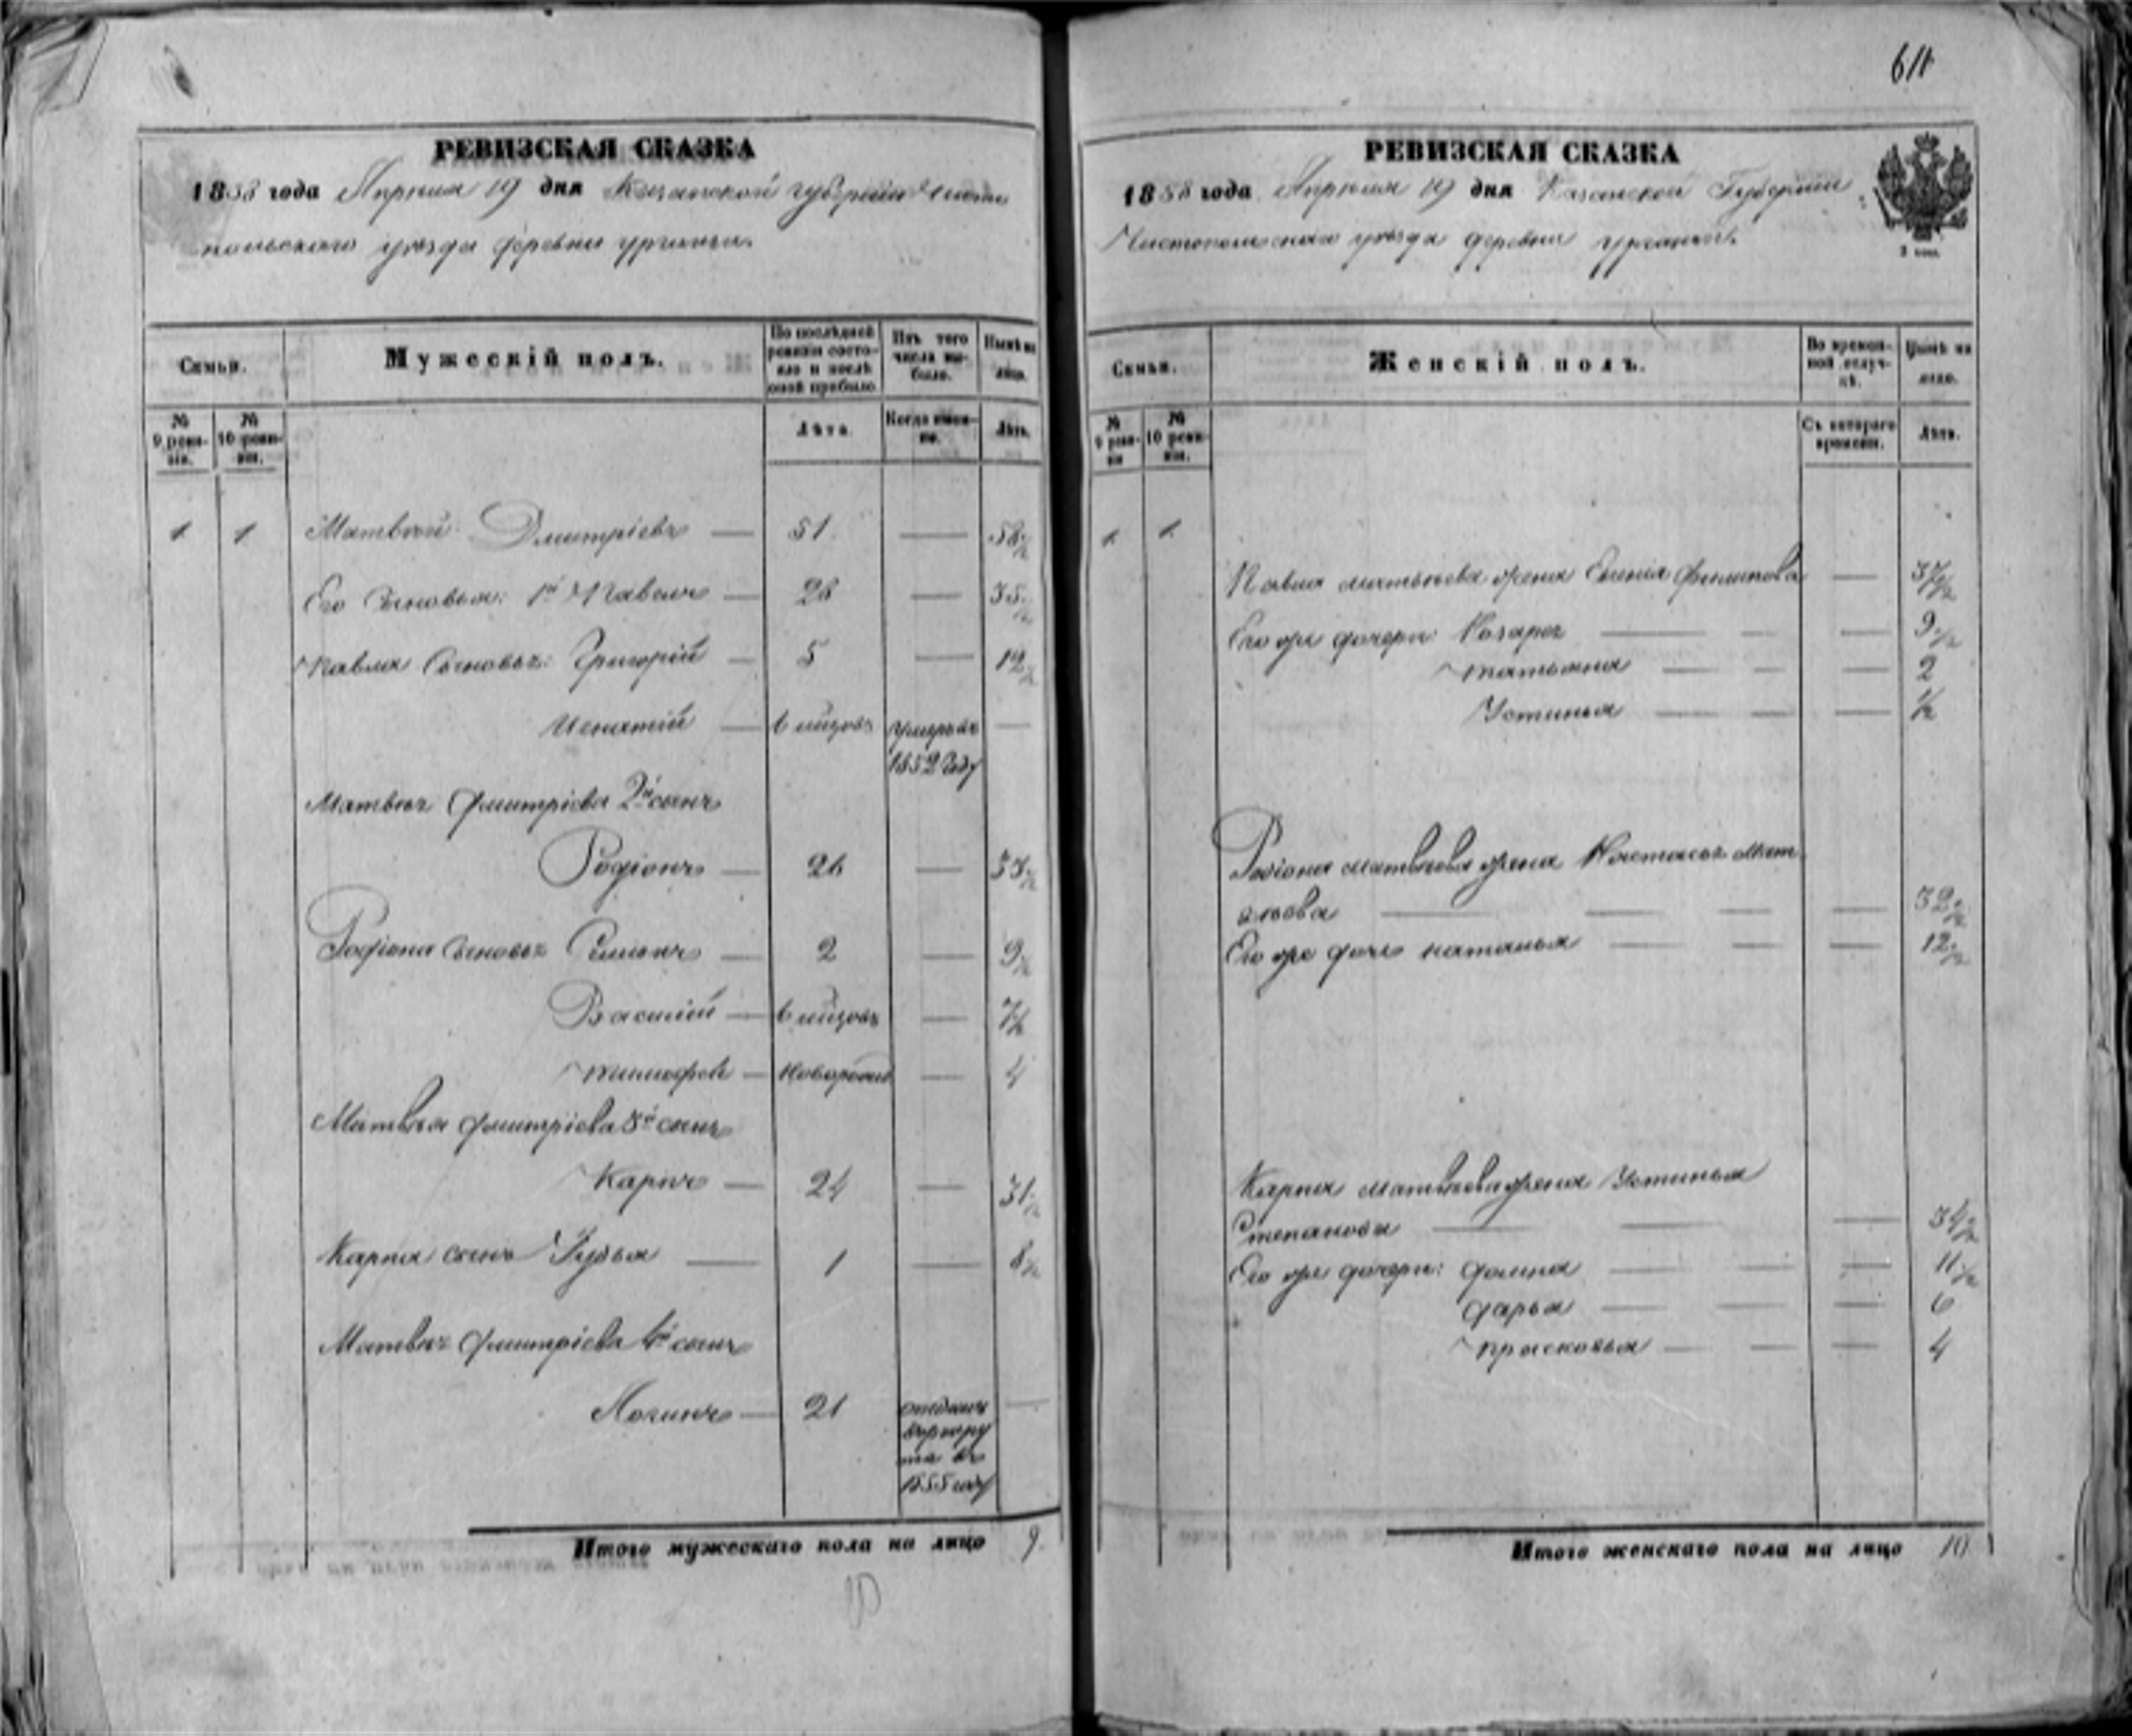 РЕВИЗСКАЯ СКАЗКА
1858 года Апреля 19 дня Казанской губернии Чисто
польскаго уезда деревни
Семьи.
Мужескій полъ.
По послѣдней ревизіи состояло и послѣ оной прибыло
Изъ того числа выбыло.
Нынѣ на лицо.
№ 9 ревизіи.
№ 10 ревизіи.
Лѣта.
Когда именно.
Лѣта.
1 1 Матвѣй Дмитріевъ — 51 — 58½
Его сыновья: 1й Павелъ — 28 — 35½
Павла сыновья: Григорій — 5 — 12½
Игнатій — 6 умеръ въ —
1852 году
Матвѣя Дмитріева 2й сынъ
Родіонъ — 26 — 33½
Родіона сыновья — 2 — 9½
Василій — 6 — 7½
Тимофей — новорожд — 4
Матвѣя Дмитріева 3й сынъ
Карпъ — 24 — 31½
Карпа сынъ — 1 — 8½
Матвѣя Дмитріева 4й сынъ
Логинъ — 21 отданъ —
въ рекру
та въ
1855 году
Итого мужескаго пола на лицо 9.
10
611
РЕВИЗСКАЯ СКАЗКА
1858 года Апреля 19 дня Казанской Губернии
Чистопольскаго уезда деревни
Семьи.
Женскій полъ.
Во временной отлучкѣ.
Нынѣ на лицо.
№ 9 ревизіи
№ 10 ревизіи.
Съ котораго времени.
Лѣта.
1 1
Павла Матвѣева жена Филипова — 37½
Его же дочери: — 9½
Татьяна — 2
Устинья — ½
Родіона Матвѣева жена Настасья
— 32½
Его же дочь Наталья — 12½
Карпа Матвѣева жена Устинья
Степанова — 34½
Его же дочери: — 11½
Дарья — 6
Прасковья — 4
Итого женскаго пола на лицо 10